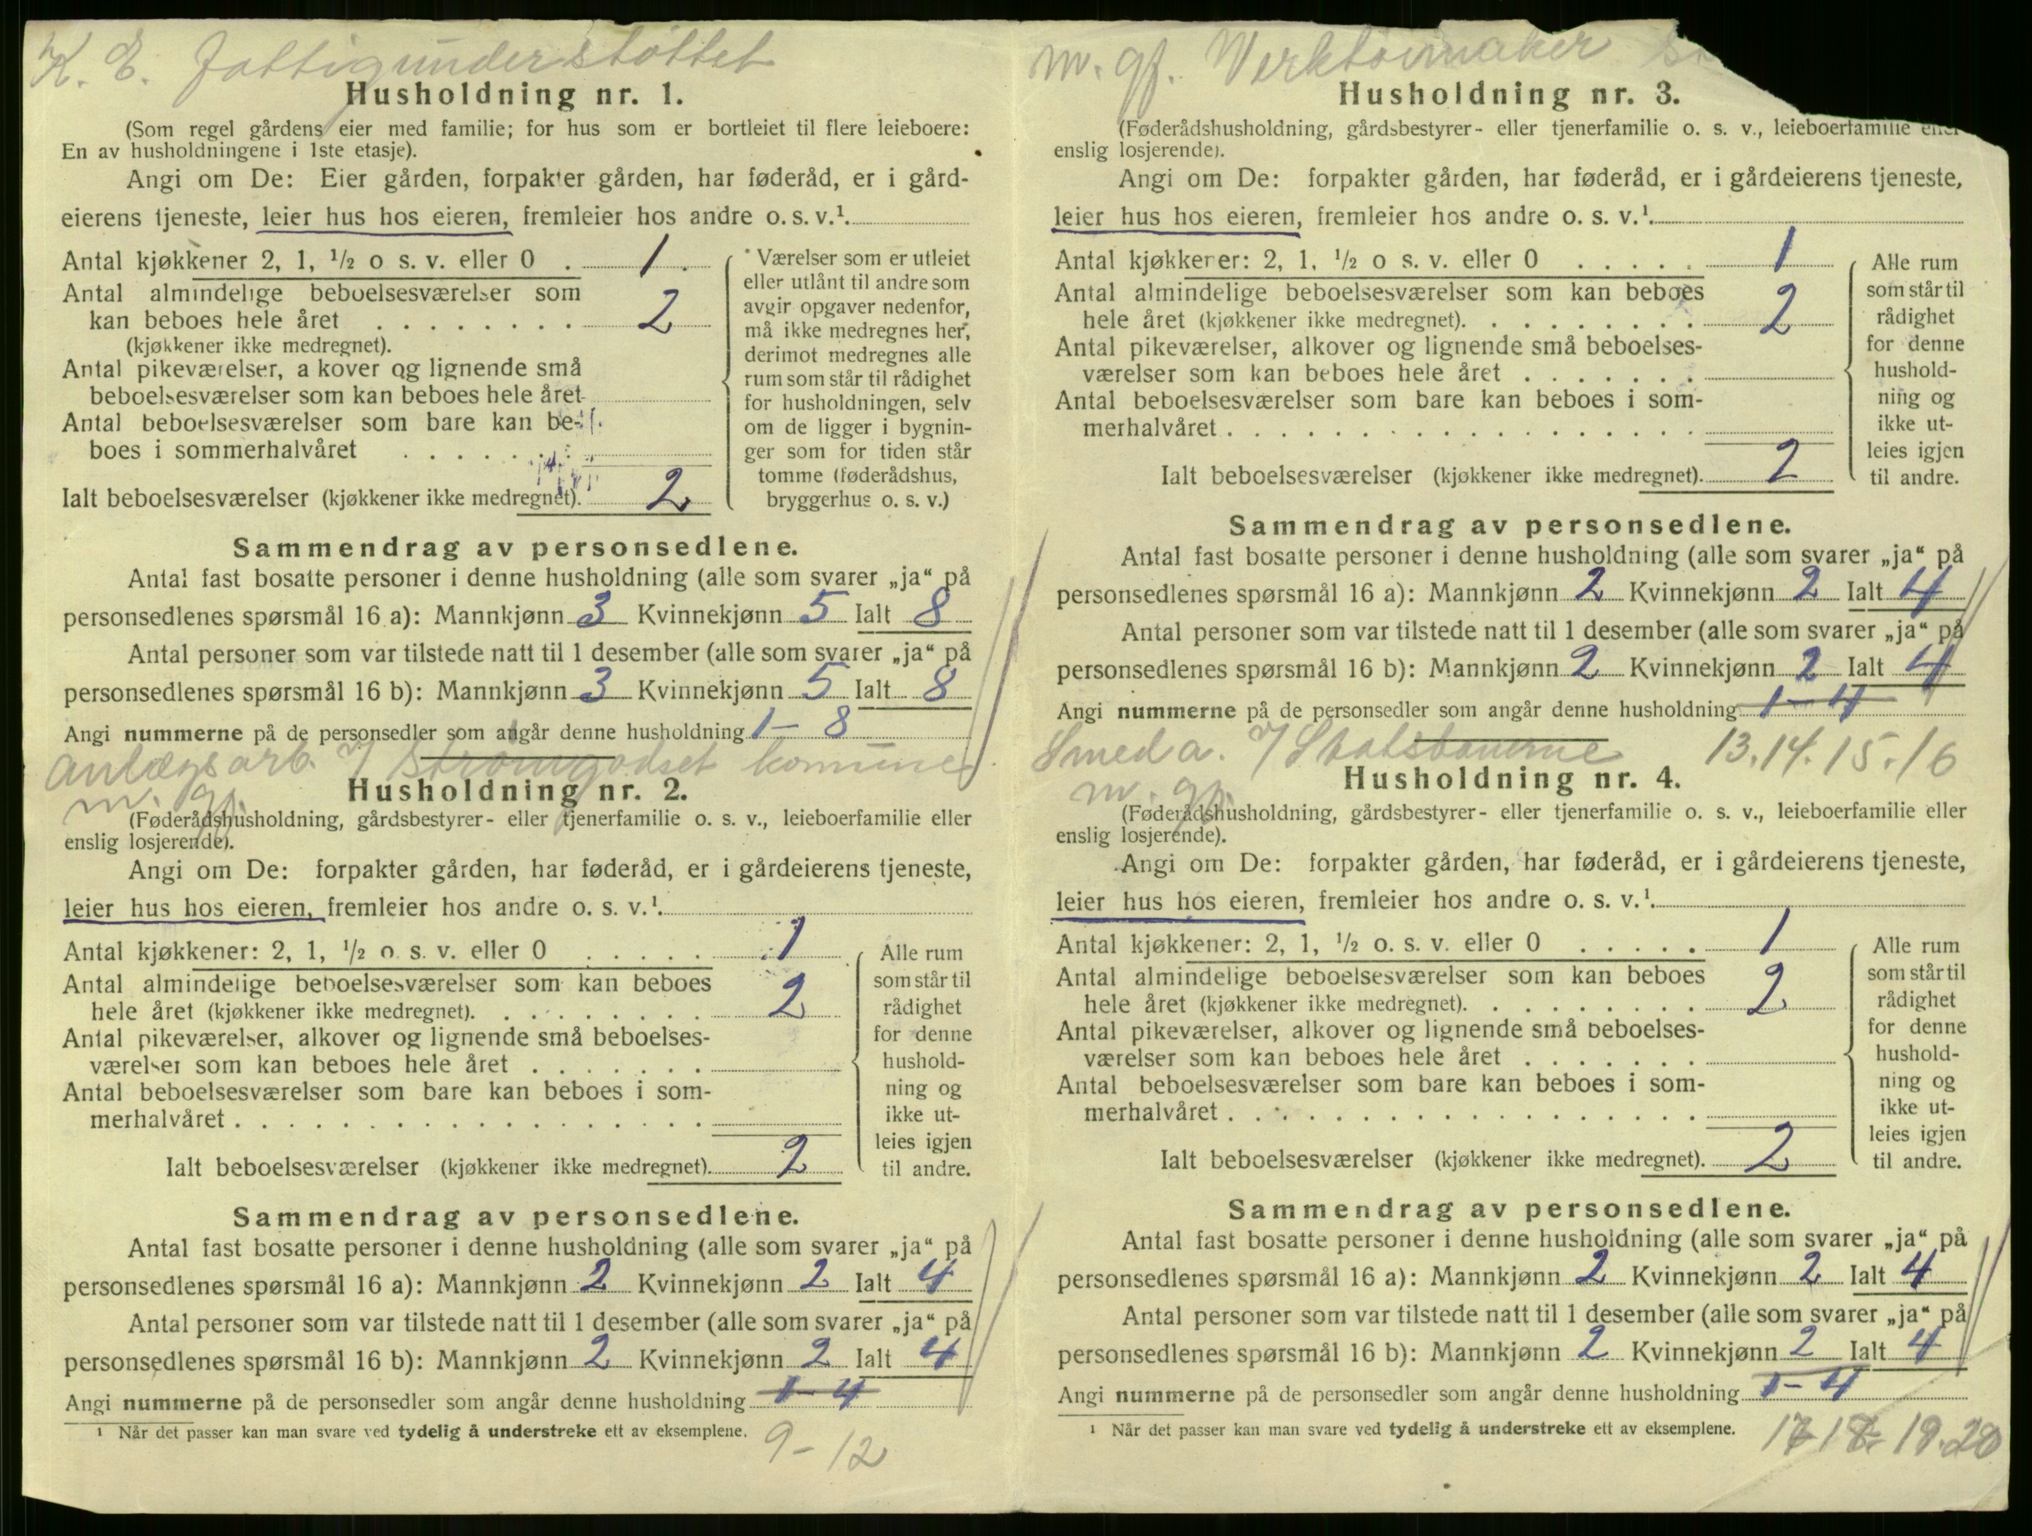 K. E. Fattigunderstøttet
Husholdning nr. 1.
(Som regel gårdens eier med familie; for hus som er bortleiet til flere leieboere:
En av husholdningene i 1ste etasje).
Angi om De: Eier gården, forpakter gården, har føderåd, er i gård-
eierens tjeneste, leier hus hos eieren, fremleier hos andre o. s. v.¹
Antal kjøkkener 2, 1, ½ o s. v. eller 0 . 1
Antal almindelige beboelsesværelser som
kan beboes hele året . . . . . . . . 2
(kjøkkener ikke medregnet).
Antal pikeværelser, a kover og lignende små
beboelsesværelser som kan beboes hele året
Antal beboelsesværelser som bare kan be-
boes i sommerhalvåret . . . . . . .
Ialt beboelsesværelser (kjøkkener ikke medregnet). 2
* Værelser som er utleiet
eller utlånt til andre som
avgir opgaver nedenfor,
må ikke medregnes her,
derimot medregnes alle
rum som står til rådighet
for husholdningen, selv
om de ligger i bygnin-
ger som for tiden står
tomme (føderådshus,
bryggerhus o. s. v.)
Sammendrag av personsedlene.
Antal fast bosatte personer i denne husholdning (alle som svarer „ja“ på
personsedlenes spørsmål 16 a): Mannkjønn 3 Kvinnekjønn 5 Ialt 8
Antal personer som var tilstede natt til 1 desember (alle som svarer „ja“ på
personsedlenes spørsmål 16 b): Mannkjønn 3 Kvinnekjønn 5 Ialt 8
Angi nummerne på de personsedler som angår denne husholdning 1-8
Anlægsarb. v/ Strømgodset komune
m. gf.
Husholdning nr. 2.
(Føderådshusholdning, gårdsbestyrer- eller tjenerfamilie o. s. v., leieboerfamilie eller
enslig losjerende).
Angi om De: forpakter gården, har føderåd, er i gårdeierens tjeneste,
leier hus hos eieren, fremleier hos andre o. s. v.¹
Antal kjøkkener: 2, 1, ½ o. s. v. eller 0 . . . . . 1
Antal almindelige beboelsesværelser som kan beboes
hele året (kjøkkener ikke medregnet). . . . . . . . . 2
Antal pikeværelser, alkover og lignende små beboelses-
værelser som kan beboes hele året . . . . . . .
Antal beboelsesværelser som bare kan beboes i som-
merhalvåret . . . . . . . . . . . . . . . . . .
Ialt beboelsesværelser (kjøkkener ikke medregnet). 2
Alle rum
som står til
rådighet
for denne
hushold-
ning og
ikke ut-
leies igjen
til andre.
Sammendrag av personsedlene.
Antal fast bosatte personer i denne husholdning (alle som svarer „ja“ på
personsedlenes spørsmål 16 a): Mannkjønn 2 Kvinnekjønn 2 Ialt 4
Antal personer som var tilstede natt til 1 desember (alle som svarer „ja“ på
personsedlenes spørsmål 16 b): Mannkjønn 2 Kvinnekjønn 2 Ialt 4
Angi nummerne på de personsedler som angår denne husholdning 1-4
¹ Når det passer kan man svare ved tydelig å understreke ett av eksemplene.
9-12
m. gf. Verktøimaker
Husholdning nr. 3.
(Føderådshusholdning, gårdsbestyrer- eller tjenerfamilie o. s. v., leieboerfamilie eller
enslig losjerende).
Angi om De: forpakter gården, har føderåd, er i gårdeierens tjeneste,
leier hus hos eieren, fremleier hos andre o. s. v.¹
Antal kjøkkener: 2, 1, ½ o s. v. eller 0 . . . . . 1
Antal almindelige beboelsesværelser som kan beboes
hele året (kjøkkener ikke medregnet). . . . . . . . . 2
Antal pikeværelser, alkover og lignende små beboelses-
værelser som kan beboes hele året . . . . . . .
Antal beboelsesværelser som bare kan beboes i som-
merhalvåret . . . . . . . . . . . . . . . . . .
Ialt beboelsesværelser (kjøkkener ikke medregnet). 2
Alle rum
som står til
rådighet
for denne
hushold-
ning og
ikke ut-
leies igjen
til andre.
Sammendrag av personsedlene.
Antal fast bosatte personer i denne husholdning (alle som svarer „ja“ på
personsedlenes spørsmål 16 a): Mannkjønn 2 Kvinnekjønn 2 Ialt 4
Antal personer som var tilstede natt til 1 desember (alle som svarer „ja“ på
personsedlenes spørsmål 16 b): Mannkjønn 2 Kvinnekjønn 2 Ialt 4
Angi nummerne på de personsedler som angår denne husholdning 1-4
Smed a. v/ Statsbanerne 13. 14. 15. 16
m. gf.
Husholdning nr. 4.
(Føderådshusholdning, gårdsbestyrer- eller tjenerfamilie o. s. v., leieboerfamilie eller
enslig losjerende).
Angi om De: forpakter gården, har føderåd, er i gårdeierens tjeneste,
leier hus hos eieren, fremleier hos andre o. s. v.¹
Antal kjøkkener: 2, 1, ½ o. s. v. eller 0 . . . . . 1
Antal almindelige beboelsesværelser som kan beboes
hele året (kjøkkener ikke medregnet). . . . . . . . . 2
Antal pikeværelser, alkover og lignende små beboelses-
værelser som kan beboes hele året . . . . . . .
Antal beboelsesværelser som bare kan beboes i som-
merhalvåret . . . . . . . . . . . . . . . . . .
Ialt beboelsesværelser (kjøkkener ikke medregnet). 2
Alle rum
som står til
rådighet
for denne
hushold-
ning og
ikke ut-
leies igjen
til andre.
Sammendrag av personsedlene.
Antal fast bosatte personer i denne husholdning (alle som svarer „ja“ på
personsedlenes spørsmål 16 a): Mannkjønn 2 Kvinnekjønn 2 Ialt 4
Antal personer som var tilstede natt til 1 desember (alle som svarer „ja“ på
personsedlenes spørsmål 16 b): Mannkjønn 2 Kvinnekjønn 2 Ialt 4
Angi nummerne på de personsedler som angår denne husholdning 1-4
¹ Når det passer kan man svare ved tydelig å understreke ett av eksemplene.
17 18. 19. 20